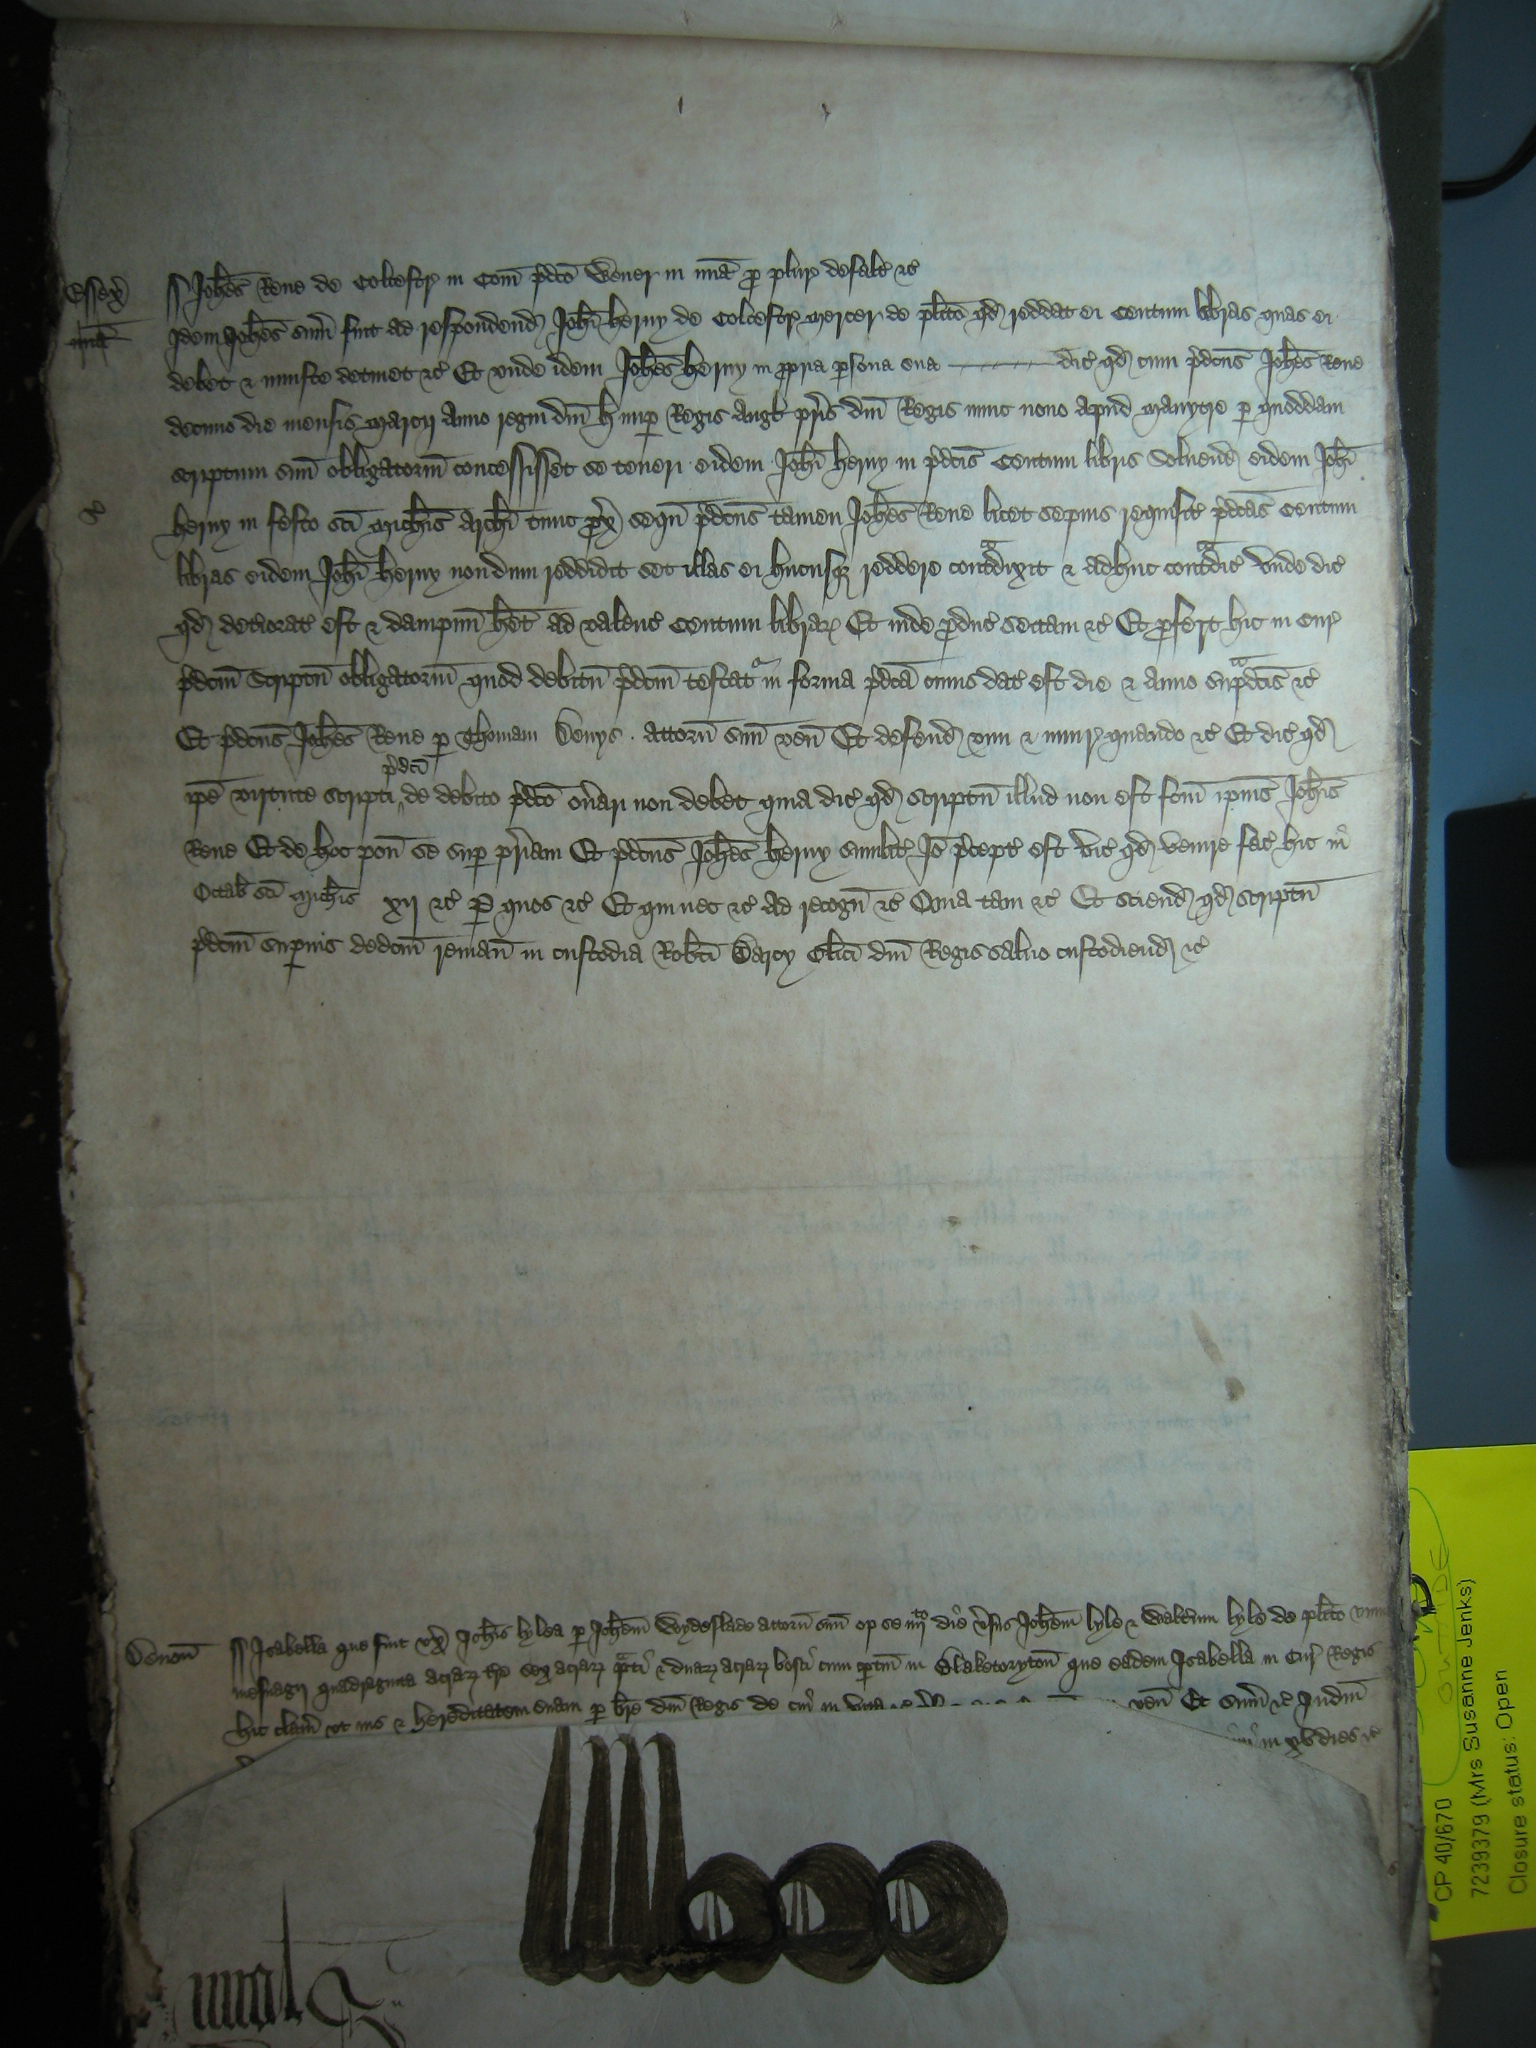 Essex̄ Joh̄es Rene de Colcestr̄ in Com̄ p̄dc̄o Wever in mīa p̄ plur̄ defalt̄ &c̄
mīa Idem Joh̄es sum̄ fuit ad respondend̄ Joh̄i herny de Colcestr̄ mercer de pl̄ito qd̄ reddat ei Centum libras quas ei
debet & iniuste detinet &c̄ Et unde idem Joh̄es herny in p̄pria p̄sona sua dic̄ qd̄ cum p̄dcus Joh̄es Rene
decimo die mensis marcij Anno regni dn̄i h nup̄ Regis Angł pr̄is dn̄i Regis nunc nono apud manytre p̄ quoddam
scriptum suū obligatoriū concessisset se teneri eidem Joh̄i herny in p̄dcīs Centum libris Solvend̄ eidem Joh̄i
herny in festo sc̄i Mich̄is Arch̄i tunc p̄x̄ sequn̄ p̄dcus tamen Joh̄es Rene licet sepius requisit̄ p̄dcas Centum
libras eidem Joh̄i herny nondum reddidit set illas ei hucusq̄ reddere contᵃdixit & adhuc contᵃdic̄ Unde dic̄
qd̄ deteriorat̄ est & dampnū h̄et ad valenc̄ Centum librar̄ Et inde p̄duc̄ sectam &c̄ Et p̄fert hic in Cur̄
p̄dcm̄ Scriptū obligatoriū quod debitū p̄dcm̄ testatᵃ in forma p̄dcā cuius dat̄ est die & Anno supᵃdcīs &c̄
Et p̄dcus Joh̄es Rene p̄ Thomam Denys Attorn̄ suū ven̄ Et defend̄ vim & iniur̄ quando &c̄ Et dic̄ qd̄
p̄dcī
ip̄e virtute scripti de debito p̄dcō on̄ari non debet quia dic̄ qd̄ scriptū illud non est fcm̄ ip̄ius Joh̄is
Rene Et de hoc pon̄ se sup̄ pr̄iam Et p̄dcus Joh̄es herny similit̄ Iō p̄cept̄ est vic̄ qd̄ venire fac̄ hic in
Octab̄ sc̄i Mich̄is xij &c̄ P̄ quos &c̄ Et qui nec &c̄ Ad recogn̄ &c̄ Quia tam &c̄ Et sciend̄ qd̄ scriptū
p̄dcm̄ sup̄ius dedcm̄ reman̄ in custodia Rob̄ti Darcy Cl̄ici dn̄i Regis salvo custodiend̄ &c̄
Devon̄ Isabella que fuit ux̄ Joh̄is lylea p̄ Joh̄em Wydeslade attorn̄ suū op̄ se iiijᵗᵒ die v̄sus Joh̄em lyle & Walt̄um lyle de pl̄ito unius
mesuagij quadraginta acrar̄ tr̄e sex acrar̄ pᵃti & duar̄ acrar̄ bosci cum p̄tin̄ in Blaketoryton̄ que eadem Isabella in Cur̄ Regis
hic clam̄ ut ius & hereditatem suam p̄ br̄e dn̄i Regis de ven̄ Et sum̄ &c̄ Judm̄
in xv dies &c̄
CP 40/670
7239379 (Mrs Susanne Jenks)
Closure status: Open